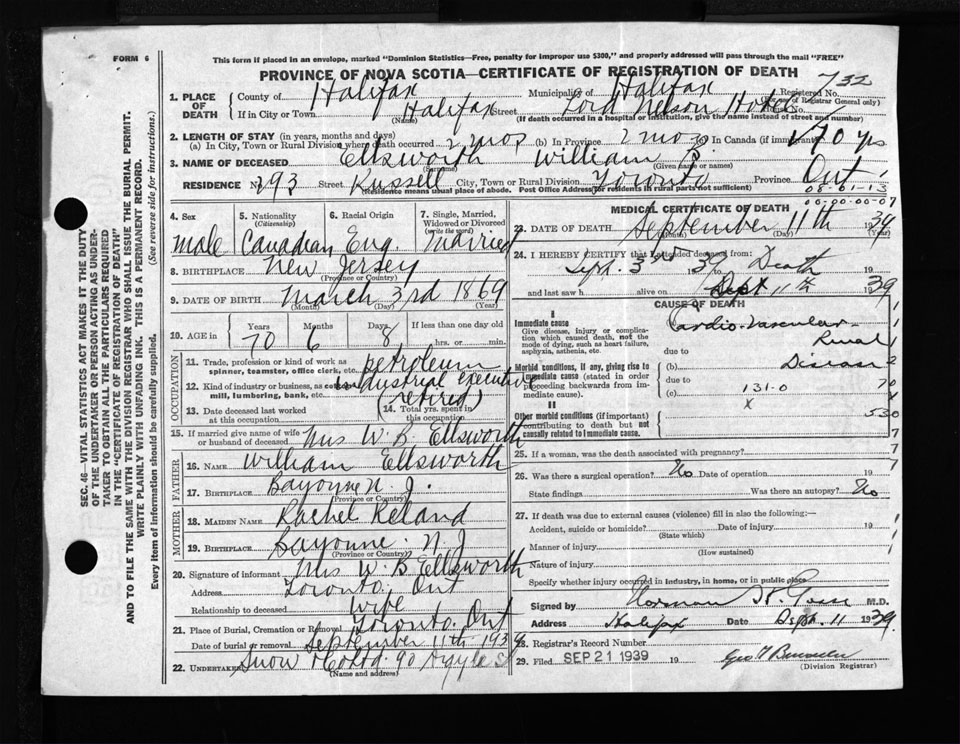 FORM 6
This form if placed in an envelope, marked "Dominion Statistics—Free, penalty for improper use $300," and properly addressed will pass through the mail "FREE"
PROVINCE OF NOVA SCOTIA—CERTIFICATE OF REGISTRATION OF DEATH
732
1. PLACE OF DEATH County of Halifax Municipality of Halifax Registered No.
(of Registrar General only)
If in City or Town Halifax Street Lord Nelson Hotel No.
(Name) (If death occurred in a hospital or institution, give name instead of street and number)
2. LENGTH OF STAY (in years, months and days)
(a) In City, Town or Rural Division where death occurred 2 mos (b) In Province 2 mos. In Canada (if immigrant) 70 yrs
3. NAME OF DECEASED Ellsworth William B
(Surname) (Given name or names)
RESIDENCE No 293 Street Russell City, Town or Rural Division Toronto Province Ont
(Residence means usual place of abode. Post Office Address for residents in rural parts not sufficient)
08-61-13
00-00-00-07
4. Sex male
5. Nationality (Citizenship) Canadian
6. Racial Origin Eng.
7. Single, Married, Widowed or Divorced (write the word) married
8. BIRTHPLACE New Jersey
(Province or Country)
9. DATE OF BIRTH March 3rd 1869
(Month) (Day) (Year)
10. AGE in Years 70 Months 6 Days 8 If less than one day old hrs. or min.
OCCUPATION
11. Trade, profession or kind of work as spinner, teamster, office clerk, etc. petroleum
12. Kind of industry or business, as mill, lumbering, bank, etc. industrial executive
(retired)
13. Date deceased last worked at this occupation
14. Total yrs. spent in this occupation
15. If married give name of wife or husband of deceased Mrs W. B. Ellsworth
FATHER
16. NAME William Ellsworth
17. BIRTHPLACE Bayonne N. J.
(Province or Country)
MOTHER
18. MAIDEN NAME Rachel Reland
19. BIRTHPLACE Bayonne N. J
(Province or Country)
20. Signature of informant Mrs W. B Ellsworth
Address Toronto. Ont
Relationship to deceased wife
21. Place of Burial, Cremation or Removal Toronto. Ont
Date of burial or removal September 11th 1939
22. UNDERTAKER Snow & Co Ltd. 90 Argyle St
(Name and address)
MEDICAL CERTIFICATE OF DEATH
23. DATE OF DEATH September 11th 1939
(Month) (Day)
24. I HEREBY CERTIFY that I attended deceased from:
Sept. 3rd 39 to Death 19
and last saw h alive on Sept 11th 1939
CAUSE OF DEATH
I
Immediate cause
Give disease, injury or complication which caused death, not the mode of dying, such as heart failure, asphyxia, asthenia, etc.
Cardio-Vascular
Renal
due to
Morbid conditions, if any, giving rise to immediate cause (stated in order proceeding backwards from immediate cause).
(b) Disease
due to
(c) 131-0
x
II
Other morbid conditions (if important) contributing to death but not causally related to immediate cause.
530
25. If a woman, was the death associated with pregnancy?
26. Was there a surgical operation? No Date of operation 19
State findings Was there an autopsy? No
27. If death was due to external causes (violence) fill in also the following:—
Accident, suicide or homicide? Date of injury 19
(State which)
Manner of injury
(How sustained)
Nature of injury
Specify whether injury occurred in industry, in home, or in public place
Signed by Norman H. Gosse M.D.
Address Halifax Date Sept. 11 1939
28. Registrar's Record Number
29. Filed SEP 21 1939 19
(Division Registrar)
SEC. 46—VITAL STATISTICS ACT MAKES IT THE DUTY OF THE UNDERTAKER OR PERSON ACTING AS UNDERTAKER TO OBTAIN ALL THE PARTICULARS REQUIRED IN THE "CERTIFICATE OF REGISTRATION OF DEATH" AND TO FILE THE SAME WITH THE DIVISION REGISTRAR WHO SHALL ISSUE THE BURIAL PERMIT.
WRITE PLAINLY WITH UNFADING INK. THIS IS A PERMANENT RECORD.
Every item of information should be carefully supplied. (See reverse side for instructions.)